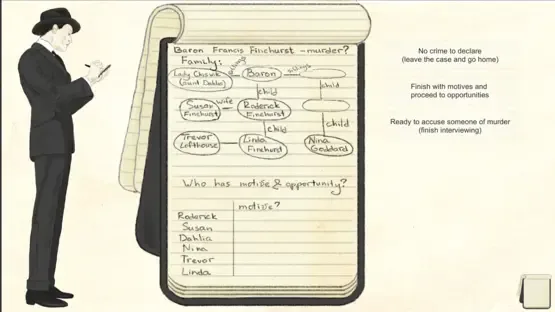 Baron Francis Finchurst - murder?
Family:
Lady Chiswick
(Aunt Dahlia)
siblings
Baron
siblings
child
child
Susan
Finchurst
wife
Roderick
Finchurst
child
child
Trevor
Lofthouse
Linda
Finchurst
Nina
Goddard
Who has motive & opportunity?
motive?
Roderick
Susan
Dahlia
Nina
Trevor
Linda
No crime to declare
(leave the case and go home)
Finish with motives and
proceed to opportunities
Ready to accuse someone of murder
(finish interviewing)